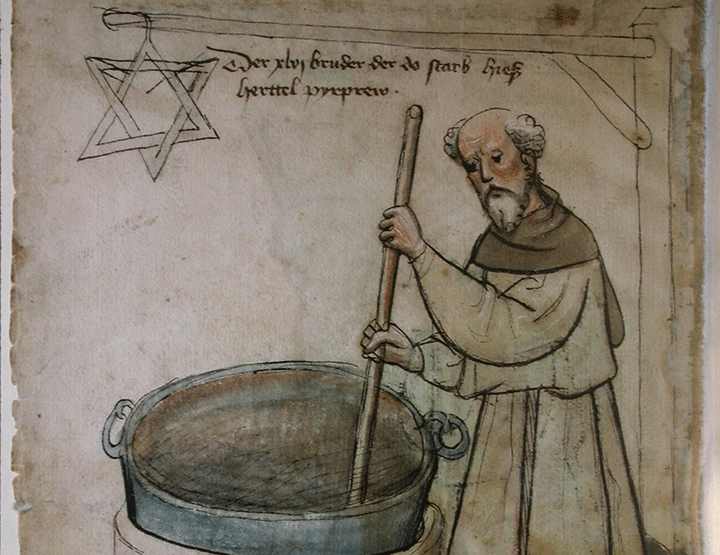 Der xlvi bruder der do starb hieß
herttel pyrprew ·